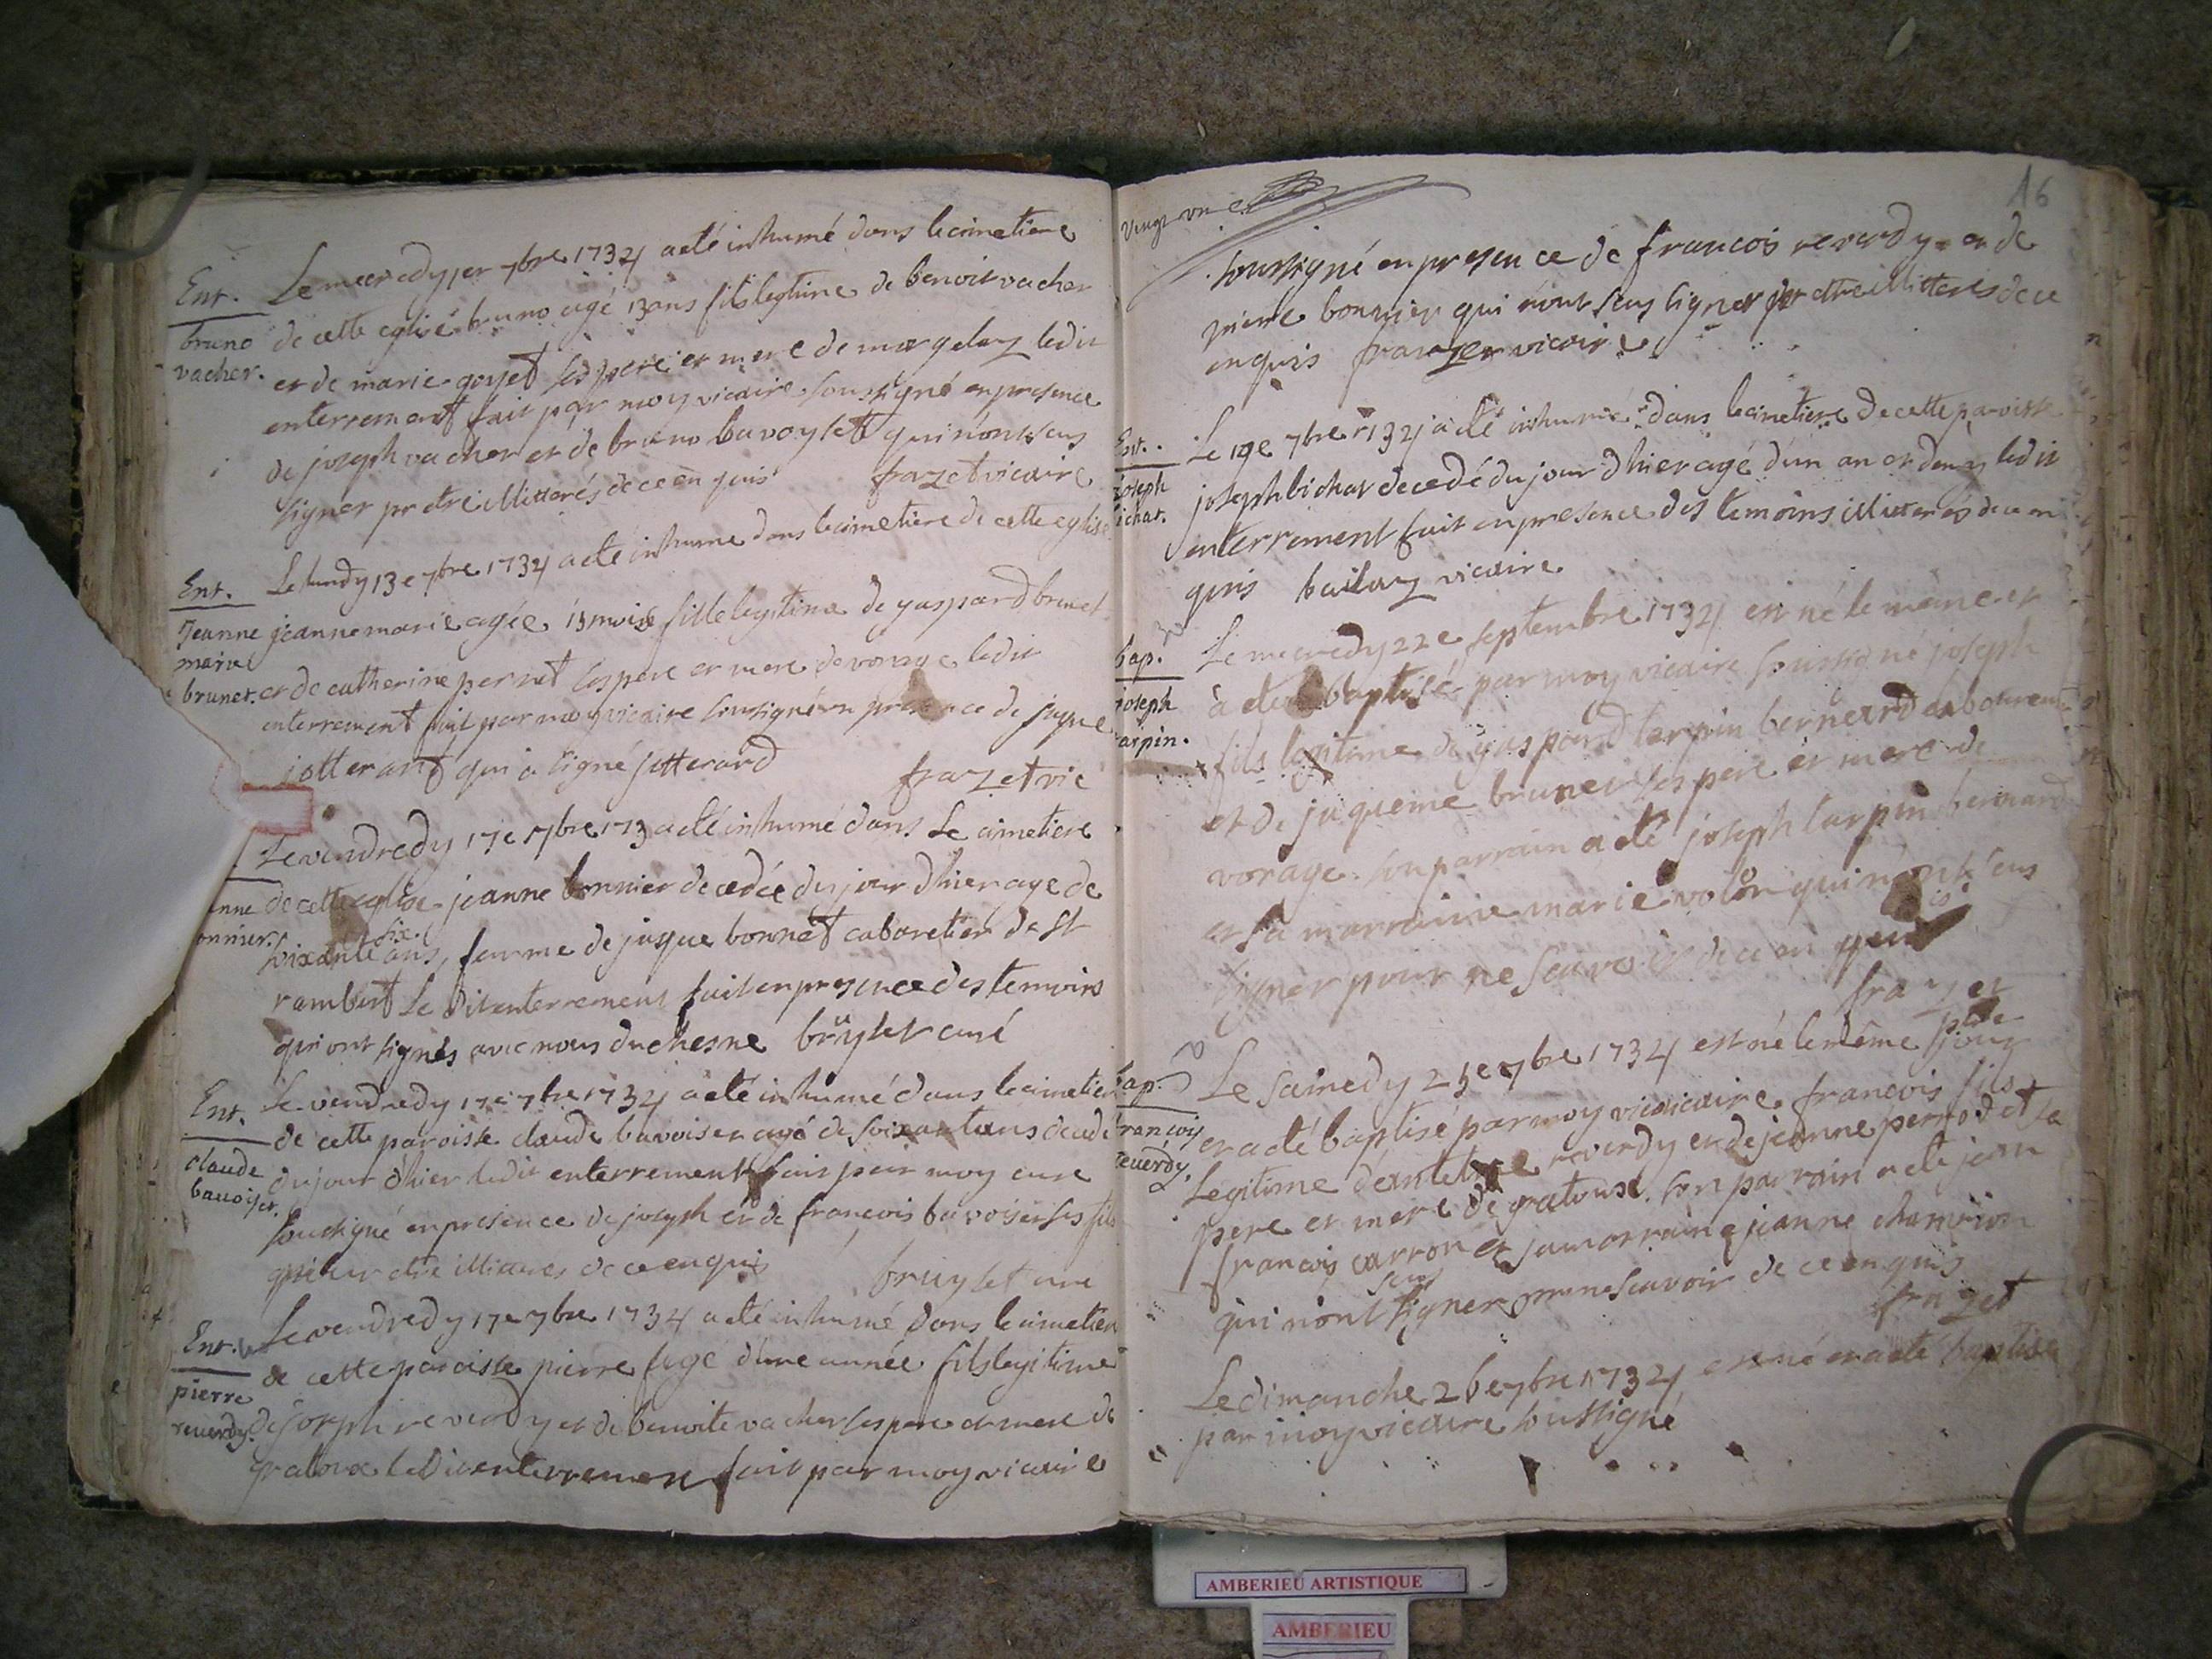 Ent.
bruno
vacher.
Le mecredy 1er 7bre 1734 a eté inhumé dans le cimetiere
de cette eglise bruno agé 13 ans fils legitime de benoit vacher
et de marie goyet ses pere et mere de margelay ledit
enterrement fait par moy vicaire soussigné en presence
de joseph vacher et de bruno bavoyset qui n'ont sçus
signer pr etre illitterés de ce enquis frazet vicaire
Ent.
Jeanne
marie
brunet.
Le lundy 13e 7bre 1734 a eté inhumé dans le cimetiere de cette eglise
jeanne marie agée 15 mois fille legitime de gaspard brunet
et de catherine pernet ses pere et mere de vorage ledit
enterrement fait par moy vicaire soussigné en presence de juque
jotterand qui a signé jotterand
frazet vic
anne
onnier.
Le vendredy 17e 7bre 173 a eté inhumé dans Le cimetiere
de cette eglise jeanne bonnier decedée du jour d'hier age de
soixante six ans, femme de juque bonnet cabaretier de st
rambert Le dit enterrement fait en presence des temoins
qui ont signés avec nous duchesne brüyset curé
Ent.
claude
bauoiset.
Le vendredy 17e 7bre 1734 a eté inhumé dans le cimetier
de cette paroisse claude bavoiset agé de soixante ans decedé
du jour d'hier ledit enterrement fait par moy curé
soussigné en presence de joseph et de francois bavoiset ses fils
illitterés de ce enquis bruyset curé
Ent.
pierre
reuerdy.
Le vendredy 17e 7bre 1734 a eté inhumé dans le cimetiere
de cette paroisse pierre agé d'une année fils legitime
de joseph reverdy et de benoite vacher ses pere et mere de
gratoux ledit enterrement fait par moy vicaire
vingt un
16
soussigné en presence de francois reverdy et de
pierre bonnier qui n'ont sçus signer pr etre illitterés de ce
enquis frazet vicaire
Ent.
joseph
ichat.
Le 19e 7bre 1734 a eté inhumé dans le cimetiere de cette paroisse
joseph bichat decedé du jour d'hier agé d'un an et demy ledit
enterrement fait en presence des temoins illitterés de ce en
quis bailaz vicaire
bap.
joseph
arpin.
Le mecredy 22e septembre 1734 est né le même et
à eté baptisé par moy vicaire soussigné joseph
fils legitime de gaspard tarpin bernard
et de juqueme brunet ses pere et mere de
vorage. son parrain a eté joseph tarpin bernard
et sa marraine marie volon qui n'ont sçus
signer pour ne sçavoir de ce en quis
frazet
bap.
francois
reuerdy.
Le samedy 25e 7bre 1734 est né le même jour
et a eté baptisé par moy vicaicaire francois fils
Legitime d'antelme reverdy et de jeanne perrodet sa
pere et mere de gratoux. son parrain a eté jean
francois carron et sa marraine jeanne chamrion
qui n'ont sçus signer pr ne sçavoir de ce enquis
frazet
Le dimanche 26e 7bre 1734 est né et a eté baptisé
par moy vicaire soussigné
AMBERIEU ARTISTIQUE
AMBERIEU